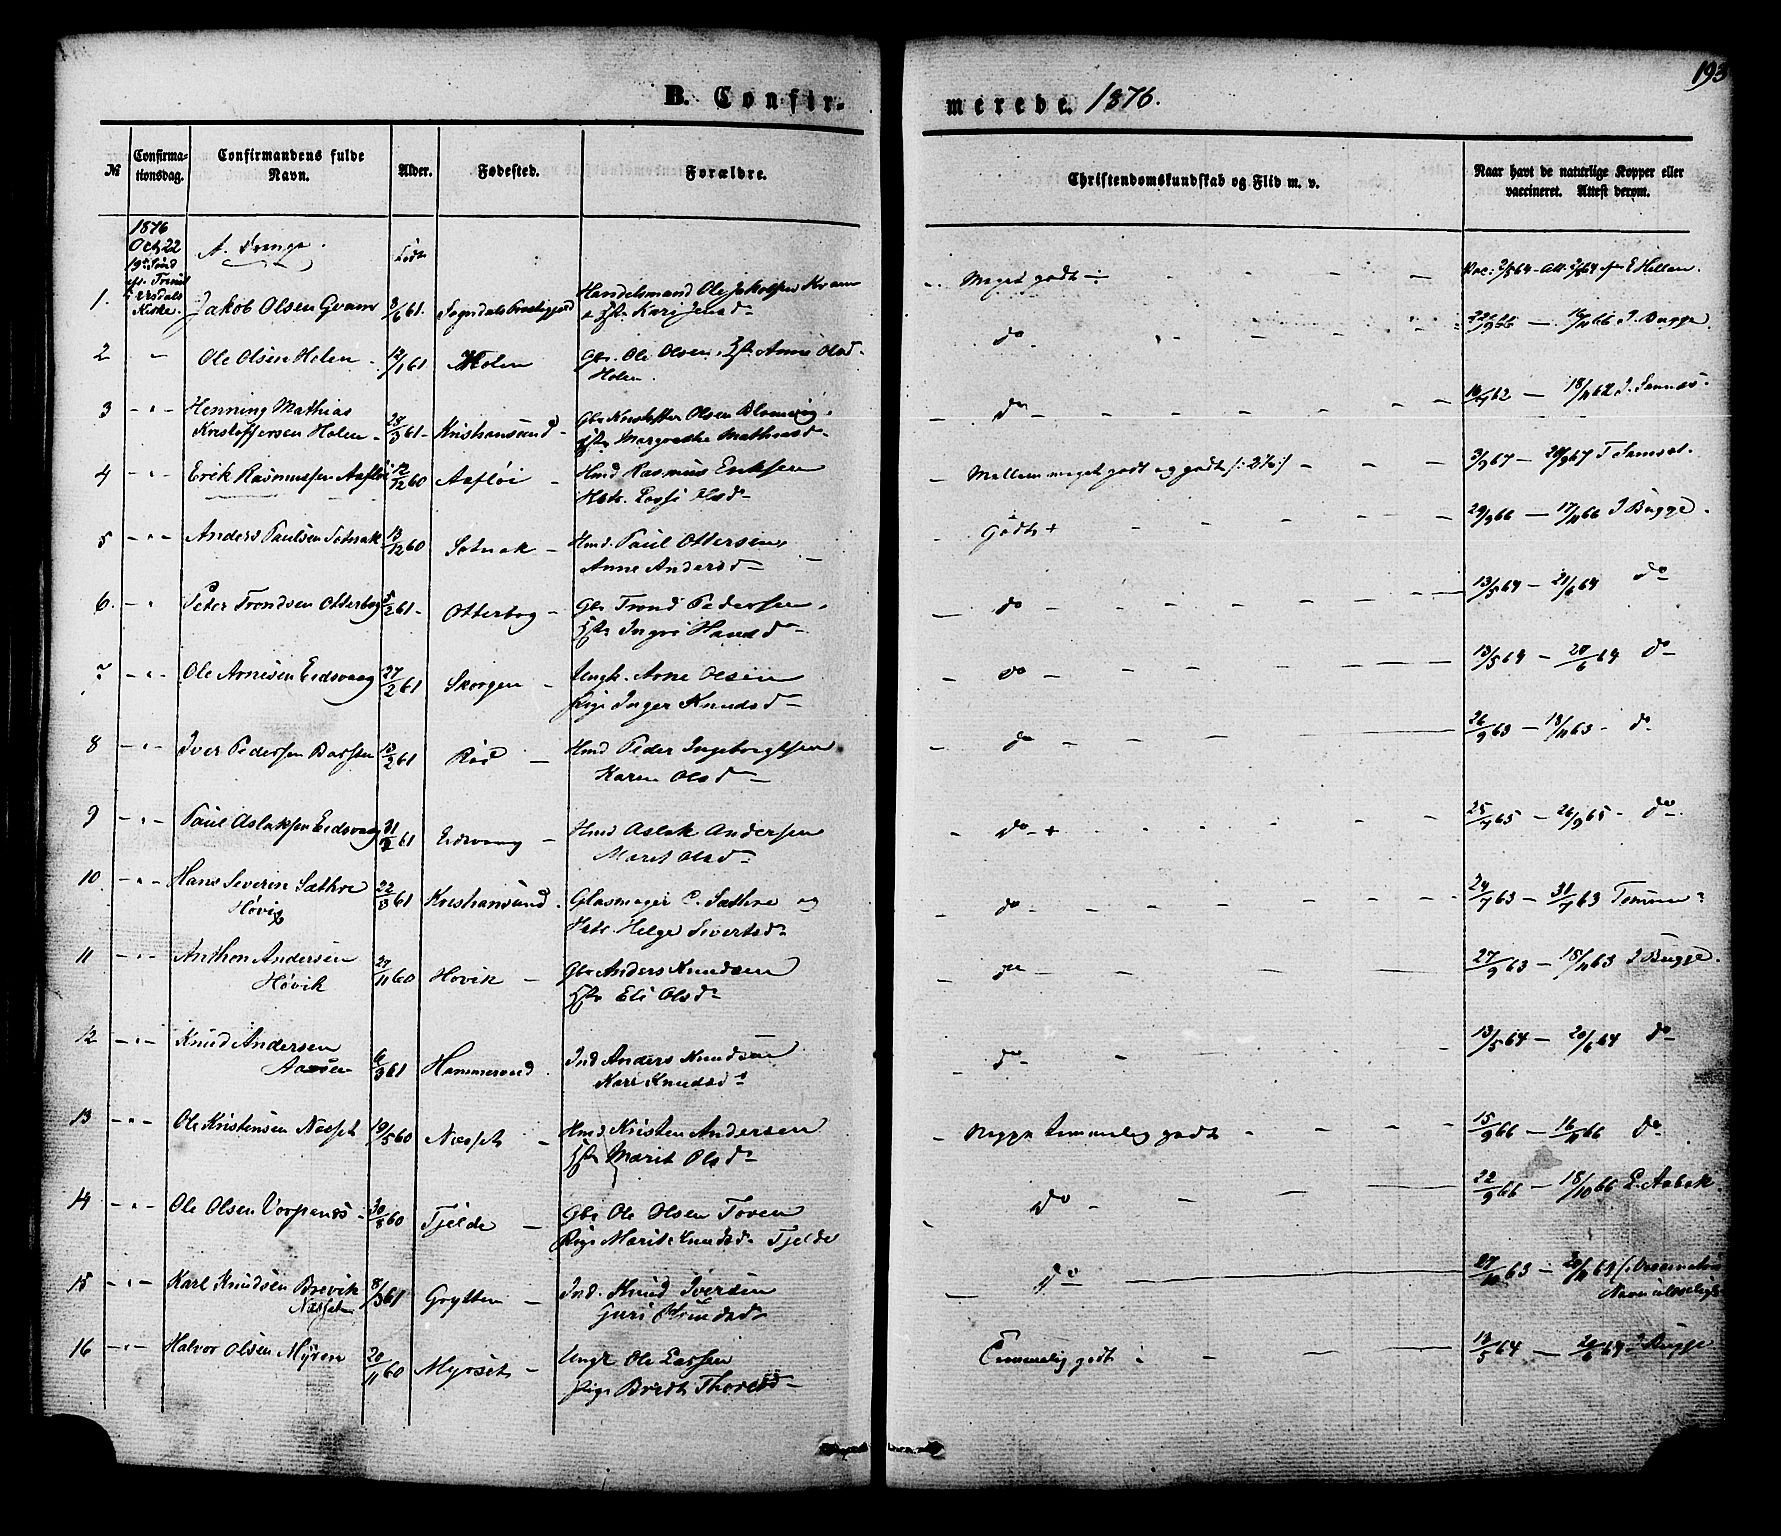 193
B. Confir-
merede. 1876.
№
Confirma-
tionsdag.
Confirmandens fulde
Navn.
Alder.
Fødested.
Forældre.
Christendomskundskab og Flid m. v.
Naar havt de naturlige Kopper eller
vaccineret. Attest derom.
1876
Oct 22
Kirke.
A. Drenge.
Født
1. Jakob Olsen Gvam 8/6 61. Sogndals Præstegjeld Handelsmand Ole Jakobsen Kvam
Kari Jensd. Meget godt Vac: 2/5 64 - Att. E Hellan
2 Ole Olsen Holen 61 Holen Gbr. Ole Olsen, Hst. Anne Olsd.
Holen. do 66 — 16/11 66 J. Bugge.
3 Henning Mathias
Kristoffersen Holen 61 Kristiansund Gbr Kristoffer Olsen
Hst. Margrethe Mathiasd. do 62 — 18/11 62
4 Erik Rasmussen Aafløi 12/12 60 Aafløi Hmd Rasmus Eriksen
Mellem meget godt og godt 3/9 67 — 67
5 Anders Paulsen Sotnak 13/12 60 Sotnak Hmd. Paul Ottersen,
Anne Andersd. Godt + 29/9 66 — 17/11 66 J Bugge.
6. Peder Trondsen Otterbog 5/2 61 Otterbog Gbr Trond Pedersen,
Hst. Ingri Hansd. do 13/5 64 — 21/6 64 do
7 Ole Arnesen Eidsvaag 27/2 61 Skorgen Ungk. Arne Olsen
Pige Inger Knudsd. do 13/5 64 — 20/6 64 do
8 Iver Pedersen 13/2 61 Rød Hmd Peder Ingebrigtsen
Karen Olsd. do 26/9 63 — 18/11 63 do
9 Paul Aslaksen Eidsvaag 61 Eidsvaag Hmd Aslak Andersen
Marit Olsd. do + 25/7 65 — 26/9 65 do
10 Hans Severin Sæthre
Høvig 22/3 61 Kristiansund. Glasmager C. Sæthre og
Helge Sivertsd. do 24/7 63 — 31/7 63
11 Anthon Andersen
Høvik 27/11 60 Høvik Gbr Anders Knudsen
Hst. Eli Olsd. do 27/9 63 — 18/11 63 J Bugge.
12 Knud Andersen
Aasen 6/3 61 Hammervold. Ind Anders Knudsen
Kari Knudsd. do 13/5 64 — 20/6 64 do
13 Ole Kristensen Næsset 19/5 60 Næsset Hmd Kristen Andersen
Hst. Marit Olsd. Neppe temmelig godt 15/9 66 — 16/11 66 do
14 Ole Olsen Vorpenæs 60 Tjelde Gbr Ole Olsen Toven
Pige Marit Knudsd. Tjelde do 22/9 66 — 18/10 66
15 Karl Knudsen Brevik
Næsset 8/3 61 Grytten Ind. Knud Iversen
Guri Knudsd. do 27/10 63 — 20/11 64
Navn ulæseligt
16 Halvor Olsen Myren 20/11 60 Myrset Ungk Ole Larsen
Pige Beret Thoresd. Temmelig godt 13/5 64 — 20/6 64 J Bugge